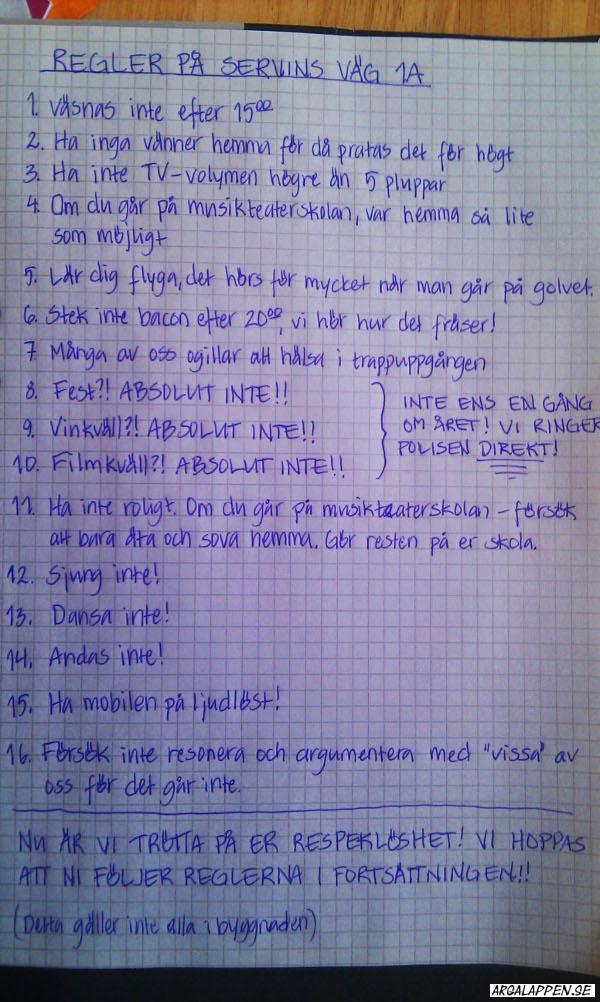 REGLER PÅ SERVINS VÄG 1A
1. Väsnas inte efter 15⁰⁰
2. Ha inga vänner hemma för då pratas det för högt
3. Ha inte TV-volymen högre än 5 pluppar
4. Om du går på musikteaterskolan, var hemma så lite
som möjligt
5. Lär dig flyga, det hörs för mycket när man går på golvet.
6. Stek inte bacon efter 20⁰⁰, vi hör hur det fräser!
7. Många av oss ogillar att hälsa i trappuppgången
8. Fest?! ABSOLUT INTE!!
9. Vinkväll?! ABSOLUT INTE!!
10. Filmkväll?! ABSOLUT INTE!!
INTE ENS EN GÅNG
OM ÅRET! VI RINGER
POLISEN DIREKT!
11. Ha inte roligt. Om du går på musikteaterskolan - försök
att bara äta och sova hemma. Gör resten på er skola.
12. Sjung inte!
13. Dansa inte!
14. Andas inte!
15. Ha mobilen på ljudlöst!
16. Försök inte resonera och argumentera med "vissa" av
oss för det går inte.
NU ÄR VI TRÖTTA PÅ ER RESPEKLÖSHET! VI HOPPAS
ATT NI FÖLJER REGLERNA I FORTSÄTTNINGEN!!
(Detta gäller inte alla i byggnaden)
ARGALAPPEN.SE